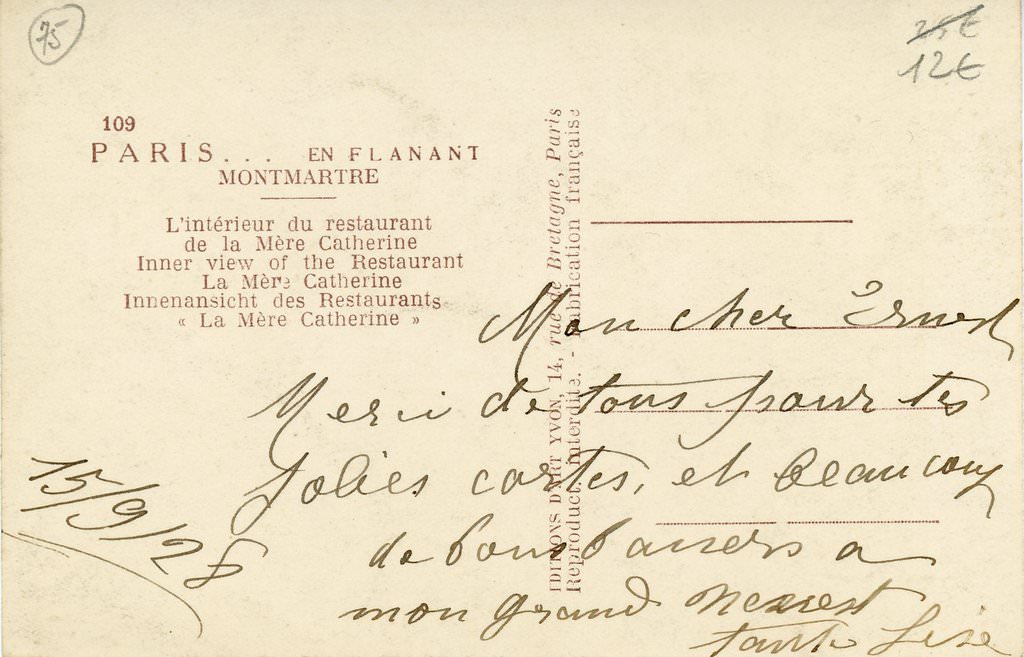 75
25€
12€
109
PARIS... EN FLANANT
MONTMARTRE
L'intérieur du restaurant
de la Mère Catherine
Inner view of the Restaurant
La Mère Catherine
Innenansicht des Restaurants
« La Mère Catherine »
EDITIONS D'ART YVON, 14, rue de Bretagne, Paris
Reproduct. interdite. - Fabrication française
Mon cher Ernest
Merci de tous pour tes
jolies cartes, et beaucoup
de bons baisers a
mon grand
tante Lise
15/9/28